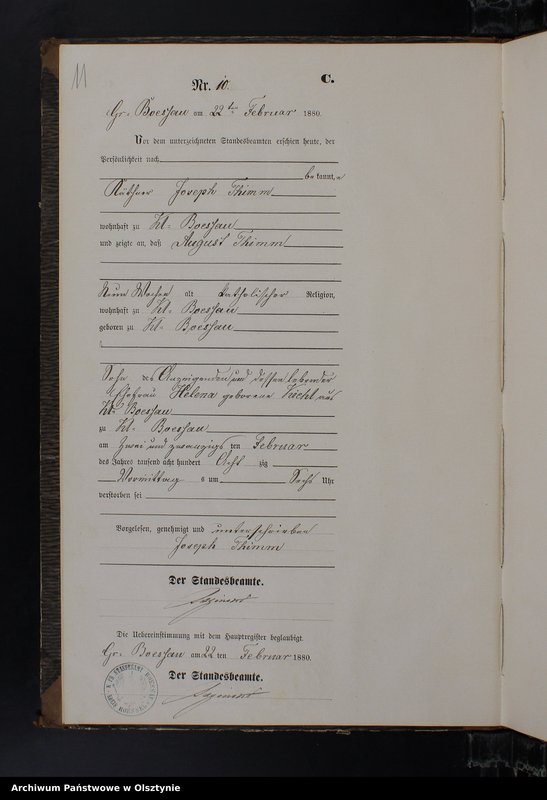 11
Nr. 10.
C.
Gr. Boessau am 22ten Februar 1880.
Vor dem unterzeichneten Standesbeamten erschien heute, der
Persönlichkeit nach
bekannt,
Käthner Joseph Thimm
wohnhaft zu Kl. Boessau
und zeigte an, daß August Thimm
Neun Wochen alt katholischer Religion,
wohnhaft zu Kl. Boessau
geboren zu Kl. Boessau
Sohn des Anzeigenden und dessen lebender
Ehefrau Helena geborene aus
Kl. Boessau
zu Kl. Boessau
am zwei und zwanzigsten Februar
des Jahres tausend acht hundert Acht zig
Vormittags um Sechs Uhr
verstorben sei
Vorgelesen, genehmigt und unterschrieben
Joseph Thimm
Der Standesbeamte.
Die Uebereinstimmung mit dem Hauptregister beglaubigt.
Gr. Boessau am 22 ten Februar 1880.
Der Standesbeamte.
Archiwum Państwowe w Olsztynie